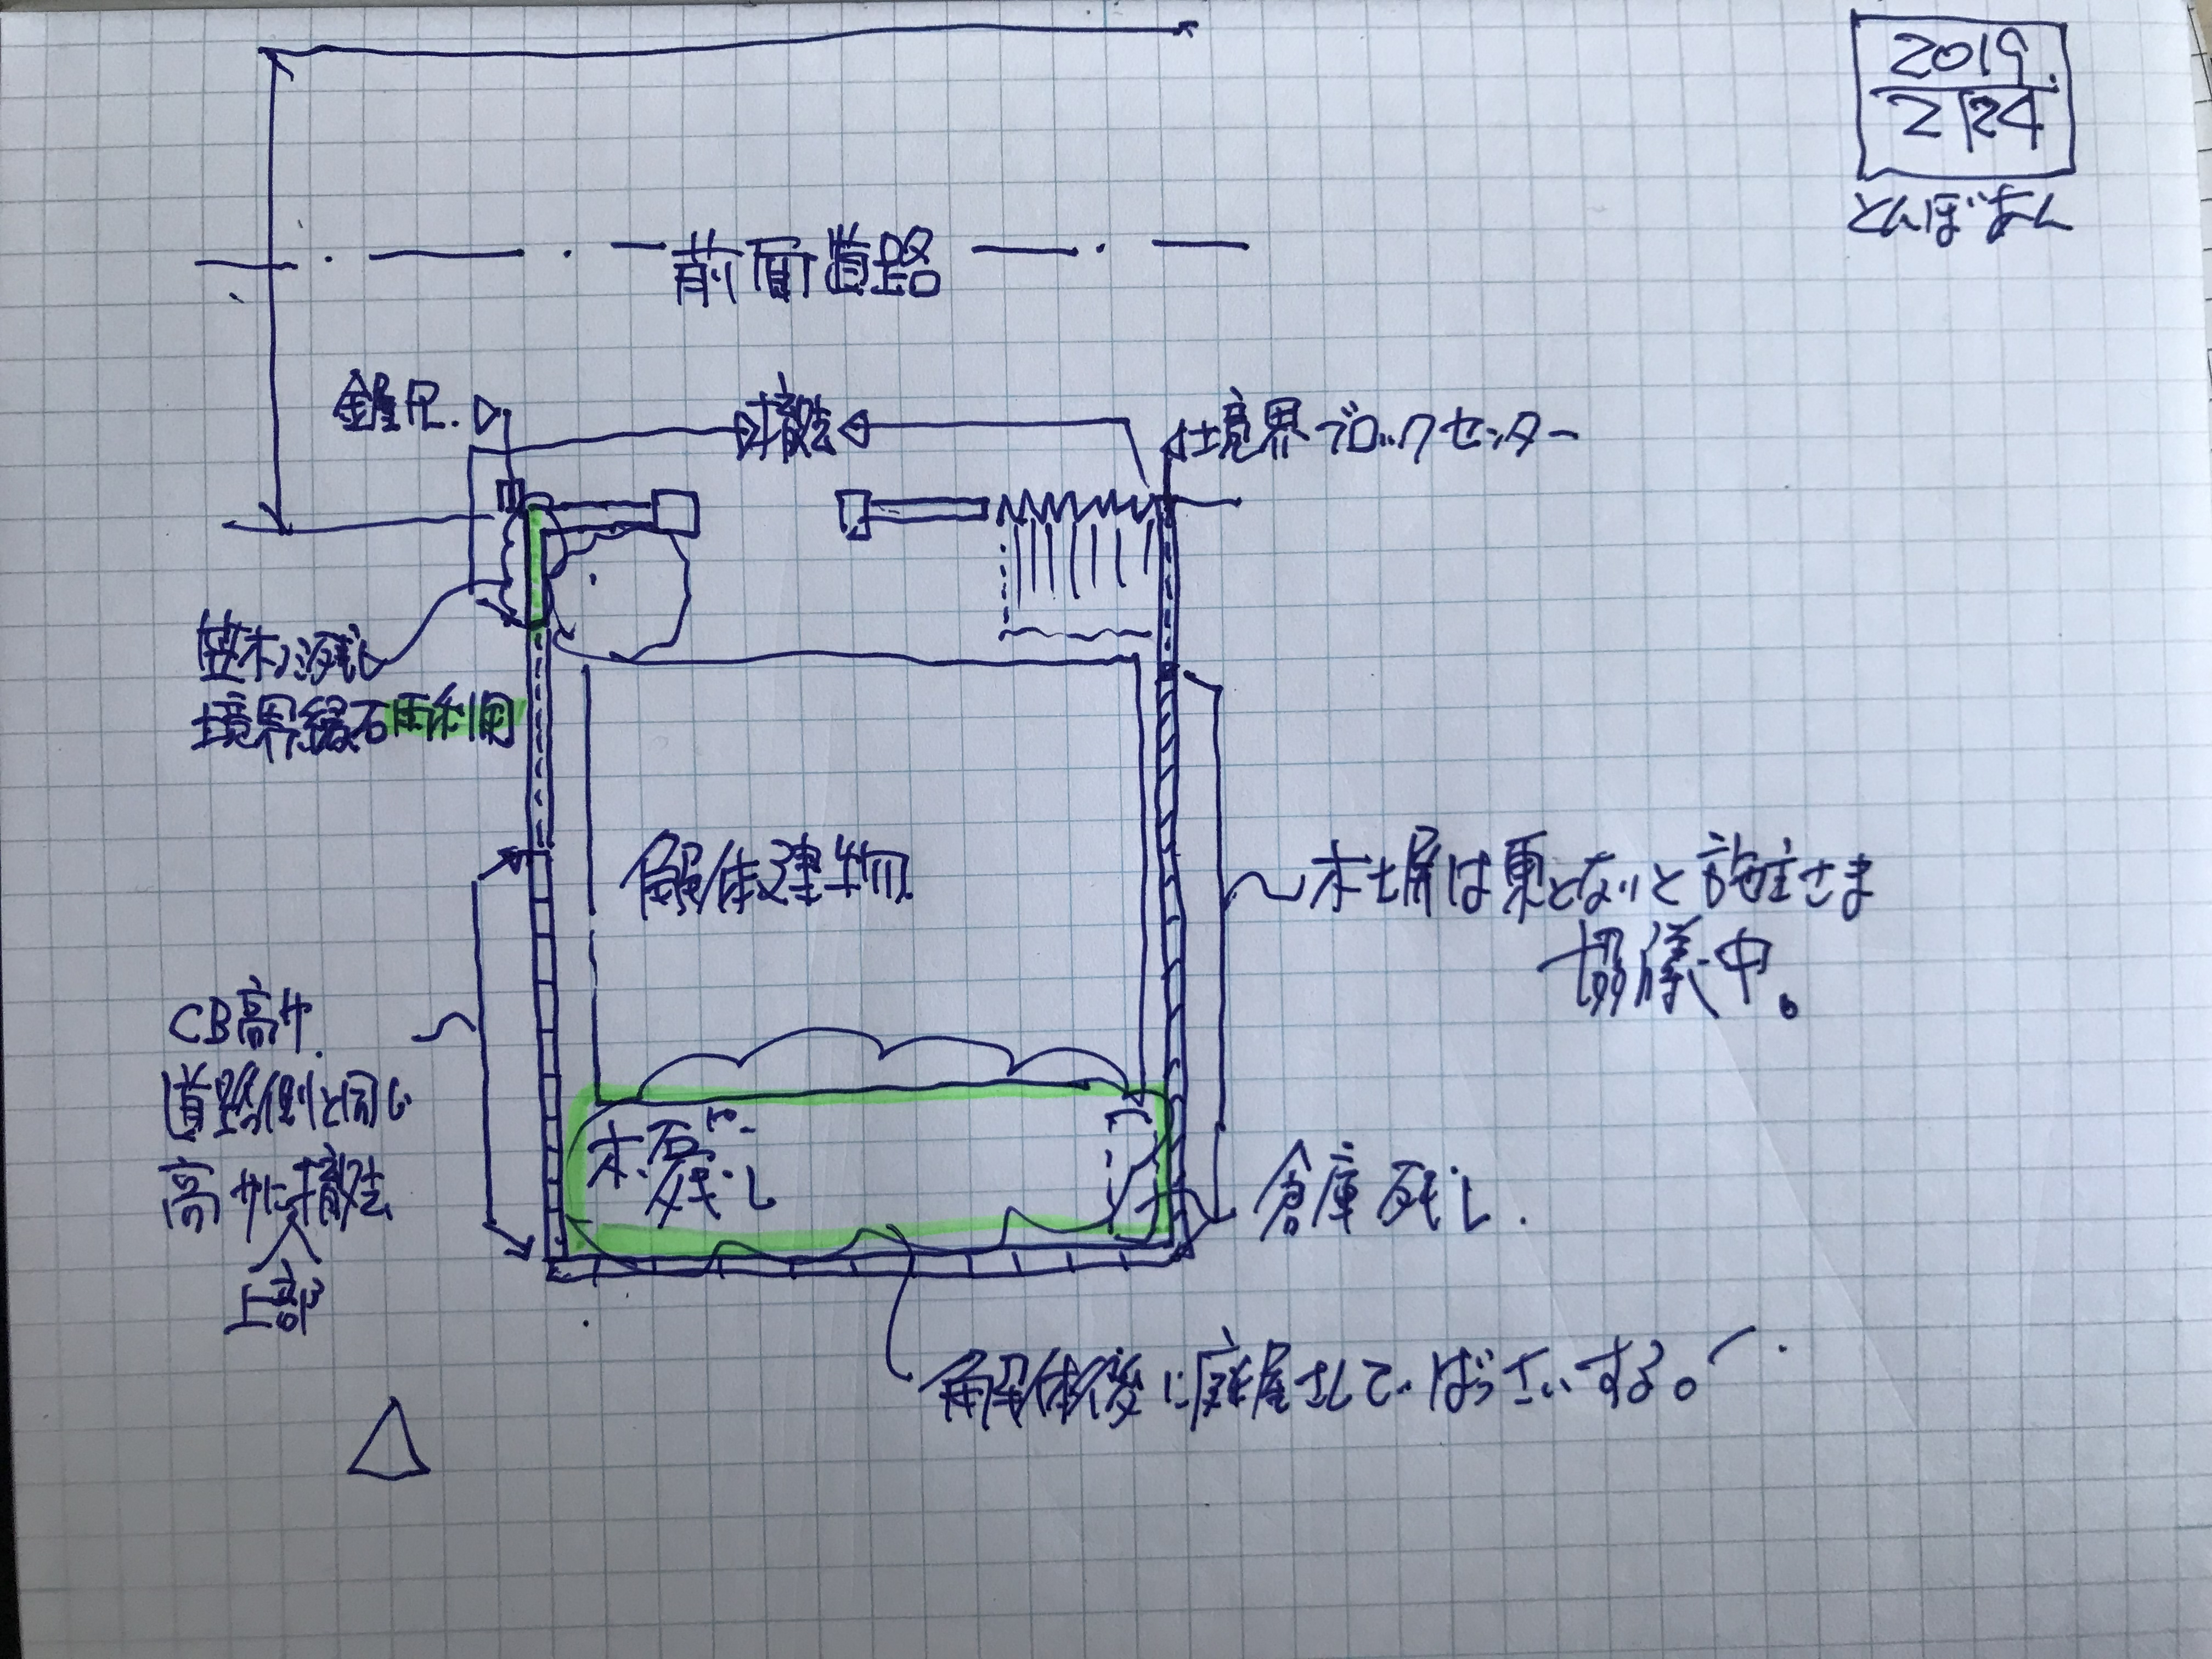 2019.
2/24
とんぼさん
前面道路
撤去
境界ブロックセンター
植木、残し
境界縁石再利用
解体建物
木塀は東とないと施主さま
協儀中。
CB高サ.
道路側と同じ
高サに撤去
上部
木、石
残し
倉庫残し.
解体後に庭屋さんてばっさいする。